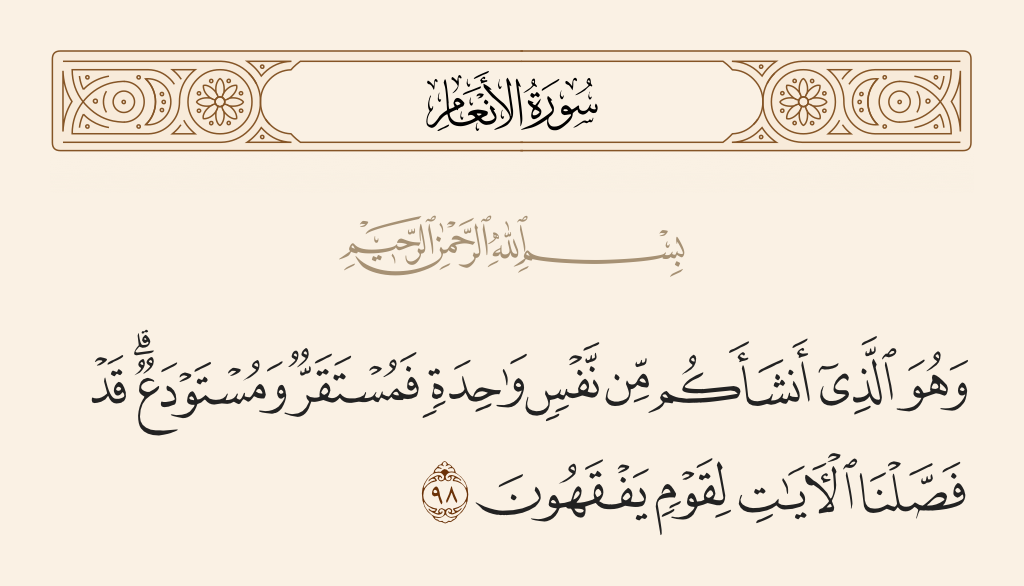 سُورَةُ الأَنْعَامِ
بِسْمِ ٱللَّهِ ٱلرَّحْمَٰنِ ٱلرَّحِيمِ
وَهُوَ ٱلَّذِىٓ أَنشَأَكُم مِّن نَّفْسٍ وَٰحِدَةٍ فَمُسْتَقَرٌّ وَمُسْتَوْدَعٌ ۗ قَدْ
فَصَّلْنَا ٱلْـَٔايَـٰتِ لِقَوْمٍ يَفْقَهُونَ ٩٨